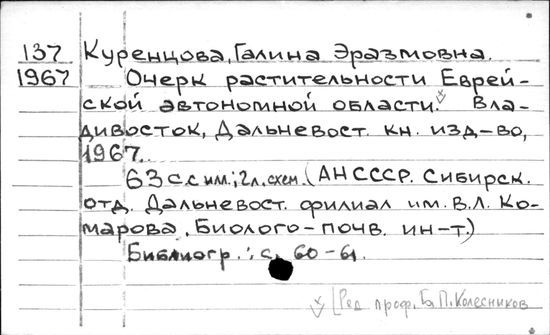 137 Куренцова, Галина Эразмовна.
1967 Очерк растительности Еврей-
ской автономной области. Вла-
дивосток, Дальневост. кн. изд-во,
1967.
63 с. с им.; 2 л. схем. (АН СССР. Сибирск.
отд. Дальневост. филиал им. В.Л. Ко-
марова. Биолого-почв. ин-т.)
Библиогр.: с. 60-61.
[Ред. проф. Б.П. Колесников